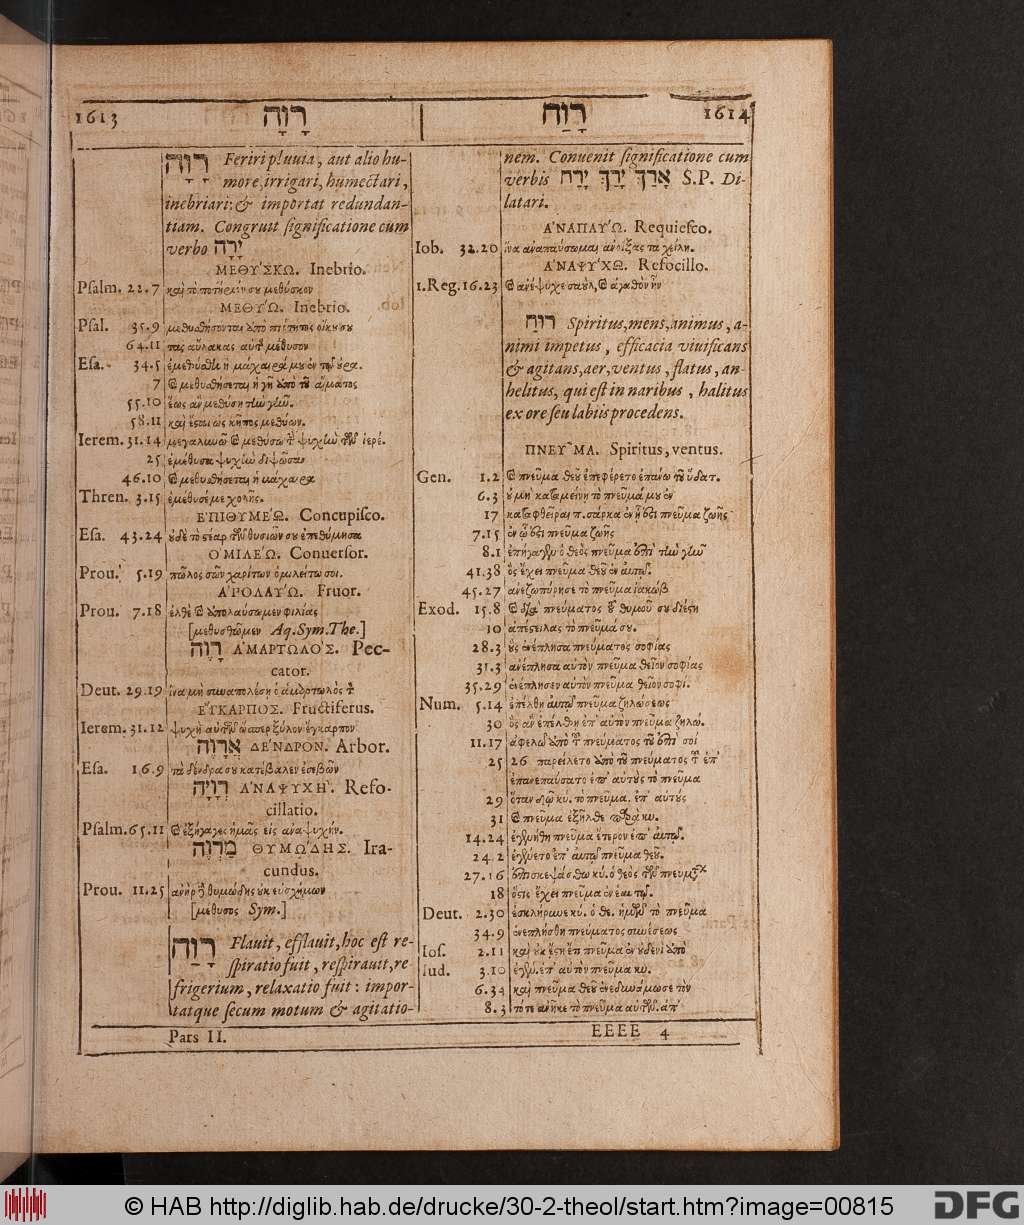 1613 רָוָה
רָוָה Feriri pluuia, aut alio hu-
more, irrigari, humectari,
inebriari: & importat redundan-
tiam. Congruit significatione cum
verbo יָרָה
ΜΕΘΥΣΚΩ. Inebrio.
Psalm. 22.7 καὶ τὸ ποτήριόν σου μεθύσκον
ΜΕΘΥΩ. Inebrio.
Psal. 35.9 μεθυσθήσονται ὑπὸ πιότητος οἴκου σου
64.11 τὰς αὔλακας αὐτῆς μέθυσον
Esa. 34.5 ἐμεθύσθη ἡ μάχαιρά μου ἐν τῷ οὐρα.
7 καὶ μεθυσθήσεται ἡ γῆ ὑπὸ τοῦ αἵματος
55.10 ἕως ἂν μεθύσῃ τὴν γῆν.
58.11 καὶ ἔσται ὡς κῆπος μεθύων.
Ierem. 31.14 μεγαλυνῶ καὶ μεθύσω τὴν ψυχὴν τῶν ἱερέ.
25 ἐμέθυσα ψυχὴν διψῶσαν
46.10 καὶ μεθυσθήσεται ἡ μάχαιρα
Thren. 3.15 ἐμέθυσέ με χολῆς.
ΕΠΙΘΥΜΕΩ. Concupisco.
Esa. 43.24 οὐδὲ τὸ στέαρ τῶν θυσιῶν σου ἐπεθύμησα
ΟΜΙΛΕΩ. Conuersor.
Prou. 5.19 πῶλος σῶν χαρίτων ὁμιλείτω σοι.
ΑΡΟΛΑΥΩ. Fruor.
Prou. 7.18 ἐλθὲ καὶ ἀπολαύσωμεν φιλίας
[μεθυσθῶμεν Aq. Sym. The.]
רָוֶה ΑΜΑΡΤΩΛΟΣ. Pec-
cator.
Deut. 29.19 ἵνα μὴ συναπολέσῃ ὁ ἁμαρτωλὸς τ
ΕΥΚΑΡΠΟΣ. Fructiferus.
Ierem. 31.12 ψυχὴ αὐτῶν ὥσπερ ξύλον ἔγκαρπον
אֲרָוֶה ΔΕΝΔΡΟΝ. Arbor.
Esa. 16.9 τὰ δένδρα σου κατέβαλεν ἐσεβὼν
רְוָיָה ΑΝΑΨΥΧΗ. Refo-
cillatio.
Psalm. 65.11 καὶ ἐξήγαγες ἡμᾶς εἰς ἀναψυχήν.
מַרְוֶה ΘΥΜΩΔΗΣ. Ira-
cundus.
Prou. 11.25 ἀνὴρ δὲ θυμώδης οὐκ εὐσχήμων
[μέθυσος Sym.]
רָוַח Flauit, efflauit, hoc est re-
spiratio fuit, respirauit, re
frigerium, relaxatio fuit: impor-
tatque secum motum & agitatio-
Pars II.
רָוַח 1614
nem. Conuenit significatione cum
verbis אָרַךְ יָרַךְ יָרַח S.P. Di-
latari.
ΑΝΑΠΑΥΩ. Requiesco.
Iob. 32.20 ἵνα ἀναπαύσωμαι ἀνοίξας τὰ χείλη.
ΑΝΑΨΥΧΩ. Refocillo.
1.Reg. 16.23 καὶ ἀνέψυχε σαούλ, καὶ ἀγαθὸν ἦν
רוּחַ Spiritus, mens, animus, a-
nimi impetus, efficacia viuificans
& agitans, aer, ventus, flatus, an-
helitus, qui est in naribus, halitus
ex ore seu labiis procedens.
ΠΝΕΥΜΑ. Spiritus, ventus.
Gen. 1.2 καὶ πνεῦμα θεοῦ ἐπεφέρετο ἐπάνω τοῦ ὕδατ.
6.3 οὐ μὴ καταμείνῃ τὸ πνεῦμά μου ἐν
17 καταφθεῖραι π. σάρκα ἐν ᾗ ἐστι πνεῦμα ζωῆς
7.15 ἐν ᾧ ἐστι πνεῦμα ζωῆς
8.1 ἐπήγαγεν ὁ θεὸς πνεῦμα ἐπὶ τὴν γῆν
41.38 ὃς ἔχει πνεῦμα θεοῦ ἐν αὑτῷ.
45.27 ἀνεζωπύρησε τὸ πνεῦμα ἰακώβ
Exod. 15.8 καὶ διὰ πνεύματος τοῦ θυμοῦ σου διέστη
10 ἀπέστειλας τὸ πνεῦμά σου.
28.3 οὓς ἐνέπλησα πνεύματος σοφίας
31.3 ἀνέπλησα αὐτὸν πνεῦμα θεῖον σοφίας
35.29 ἐνέπλησεν αὐτὸν πνεῦμα θεῖον σοφι.
Num. 5.14 ἐπέλθῃ αὐτῷ πνεῦμα ζηλώσεως
30 ὃς ἂν ἐπέλθῃ ἐπ' αὐτὸν πνεῦμα ζηλώ.
11.17 ἀφελῶ ἀπὸ τοῦ πνεύματος τοῦ ἐπὶ σοὶ
25 26 παρείλετο ἀπὸ τοῦ πνεύματος τοῦ ἐπ'
ἐπανεπαύσατο ἐπ' αὐτοὺς τὸ πνεῦμα
29 ὅταν δῷ κύ. τὸ πνεῦμα. ἐπ' αὐτούς
31 καὶ πνεῦμα ἐξῆλθε παρὰ κυ.
14.24 ἐγενήθη πνεῦμα ἕτερον ἐν αὐτῷ.
24.2 ἐγένετο ἐπ' αὐτῷ πνεῦμα θεοῦ.
27.16 ἐπισκεψάσθω κύ. ὁ θεὸς τῶν πνευμάτ
18 ὅστις ἔχει πνεῦμα ἐν ἑαυτῷ.
Deut. 2.30 ἐσκλήρυνε κύ. ὁ θε. ἡμῶν τὸ πνεῦμα
34.9 ἐνεπλήσθη πνεύματος συνέσεως
Ios. 2.11 καὶ οὐκ ἔστη ἔτι πνεῦμα ἐν οὐδενὶ ἀπὸ
Iud. 3.10 ἐγέν. ἐπ' αὐτὸν πνεῦμα κυ.
6.34 καὶ πνεῦμα θεοῦ ἐνεδυνάμωσε τὸν
8.3 τότε ἀνῆκε τὸ πνεῦμα αὐτῶν. ἀπ'
EEEE 4
© HAB http://diglib.hab.de/drucke/30-2-theol/start.htm?image=00815
DFG